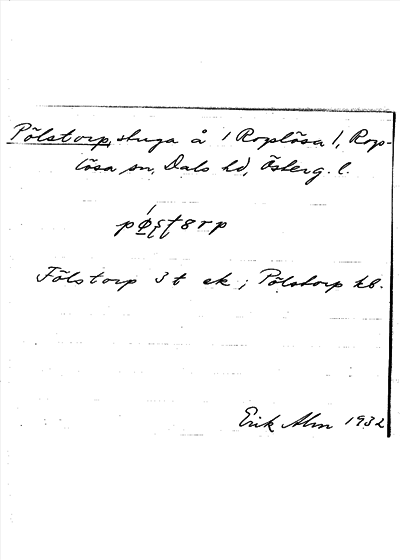 Pölstorp, stuga å /Roglösa/, Rog-
lösa sn, Dals hd, Österg. l.
Fölstorp 3 t ek; Pölstorp kb.
Erik Alm 1932